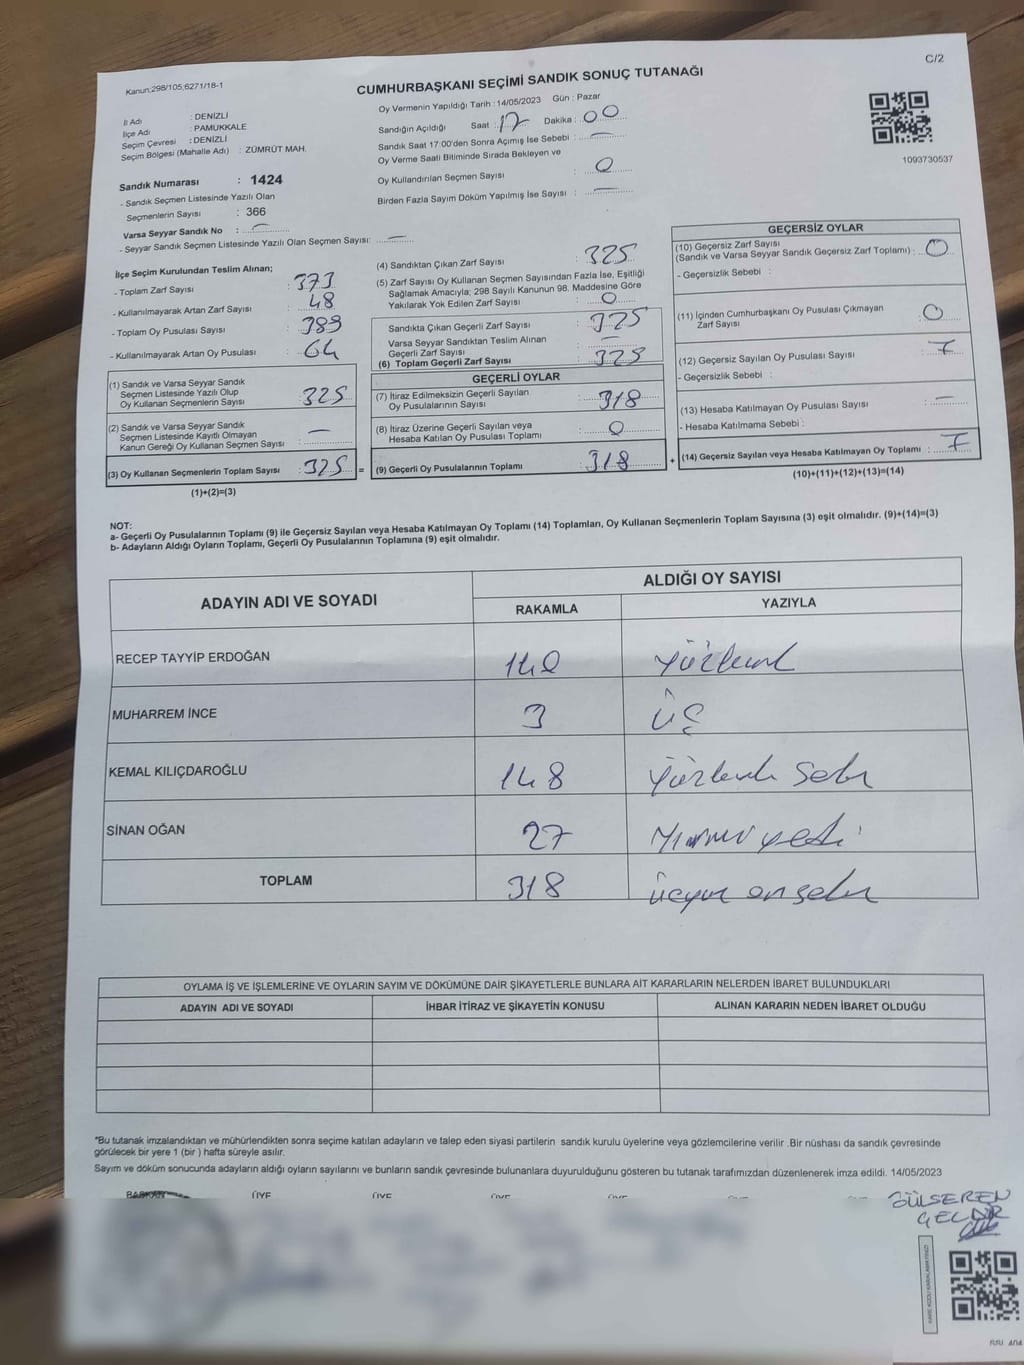 C/2
Kanun:298/105,6271/18-1
CUMHURBAŞKANI SEÇİMİ SANDIK SONUÇ TUTANAĞI
İl Adı : DENİZLİ
İlçe Adı : PAMUKKALE
Seçim Çevresi : DENİZLİ
Seçim Bölgesi (Mahalle Adı) : ZÜMRÜT MAH.
Sandık Numarası : 1424
- Sandık Seçmen Listesinde Yazılı Olan
Seçmenlerin Sayısı : 366
Varsa Seyyar Sandık No : —
- Seyyar Sandık Seçmen Listesinde Yazılı Olan Seçmen Sayısı: —
Oy Vermenin Yapıldığı Tarih : 14/05/2023 Gün : Pazar
Sandığın Açıldığı Saat : 17 Dakika : 00
Sandık Saat 17:00'den Sonra Açımış İse Sebebi : —
Oy Verme Saati Bitiminde Sırada Bekleyen ve
Oy Kullandırılan Seçmen Sayısı : 0
Birden Fazla Sayım Döküm Yapılmış İse Sayısı : —
1093730537
İlçe Seçim Kurulundan Teslim Alınan;
- Toplam Zarf Sayısı : 373
- Kullanılmayarak Artan Zarf Sayısı : 48
- Toplam Oy Pusulası Sayısı : 389
- Kullanılmayarak Artan Oy Pusulası : 64
(1) Sandık ve Varsa Seyyar Sandık
Seçmen Listesinde Yazılı Olup
Oy Kullanan Seçmenlerin Sayısı : 325
(2) Sandık ve Varsa Seyyar Sandık
Seçmen Listesinde Kayıtlı Olmayan
Kanun Gereği Oy Kullanan Seçmen Sayısı : —
(3) Oy Kullanan Seçmenlerin Toplam Sayısı : 325 =
(1)+(2)=(3)
(4) Sandıktan Çıkan Zarf Sayısı : 325
(5) Zarf Sayısı Oy Kullanan Seçmen Sayısından Fazla İse, Eşitliği
Sağlamak Amacıyla; 298 Sayılı Kanunun 98. Maddesine Göre
Yakılarak Yok Edilen Zarf Sayısı : 0
Sandıkta Çıkan Geçerli Zarf Sayısı : 325
Varsa Seyyar Sandıktan Teslim Alınan
Geçerli Zarf Sayısı : —
(6) Toplam Geçerli Zarf Sayısı : 325
GEÇERLİ OYLAR
(7) İtiraz Edilmeksizin Geçerli Sayılan
Oy Pusulalarının Sayısı : 318
(8) İtiraz Üzerine Geçerli Sayılan veya
Hesaba Katılan Oy Pusulası Toplamı : 0
(9) Geçerli Oy Pusulalarının Toplamı : 318 +
GEÇERSİZ OYLAR
(10) Geçersiz Zarf Sayısı
(Sandık ve Varsa Seyyar Sandık Geçersiz Zarf Toplamı) : 0
- Geçersizlik Sebebi :
(11) İçinden Cumhurbaşkanı Oy Pusulası Çıkmayan
Zarf Sayısı : 0
(12) Geçersiz Sayılan Oy Pusulası Sayısı : 7
- Geçersizlik Sebebi :
(13) Hesaba Katılmayan Oy Pusulası Sayısı : —
- Hesaba Katılmama Sebebi :
(14) Geçersiz Sayılan veya Hesaba Katılmayan Oy Toplamı : 7
(10)+(11)+(12)+(13)=(14)
NOT:
a- Geçerli Oy Pusulalarının Toplamı (9) ile Geçersiz Sayılan veya Hesaba Katılmayan Oy Toplamı (14) Toplamları, Oy Kullanan Seçmenlerin Toplam Sayısına (3) eşit olmalıdır. (9)+(14)=(3)
b- Adayların Aldığı Oyların Toplamı, Geçerli Oy Pusulalarının Toplamına (9) eşit olmalıdır.
ADAYIN ADI VE SOYADI ALDIĞI OY SAYISI
RAKAMLA YAZIYLA
RECEP TAYYİP ERDOĞAN 140 Yüzkırk
MUHARREM İNCE 3 üç
KEMAL KILIÇDAROĞLU 148 Yüzkırk sekiz
SİNAN OĞAN 27 Yirmi yedi
TOPLAM 318 üçyüz onsekiz
OYLAMA İŞ VE İŞLEMLERİNE VE OYLARIN SAYIM VE DÖKÜMÜNE DAİR ŞİKAYETLERLE BUNLARA AİT KARARLARIN NELERDEN İBARET BULUNDUKLARI
ADAYIN ADI VE SOYADI İHBAR İTİRAZ VE ŞİKAYETİN KONUSU ALINAN KARARIN NEDEN İBARET OLDUĞU
"Bu tutanak imzalandıktan ve mühürlendikten sonra seçime katılan adayların ve talep eden siyasi partilerin sandık kurulu üyelerine veya gözlemcilerine verilir .Bir nüshası da sandık çevresinde
görülecek bir yere 1 (bir ) hafta süreyle asılır.
Sayım ve döküm sonucunda adayların aldığı oyların sayılarını ve bunların sandık çevresinde bulunanlara duyurulduğunu gösteren bu tutanak tarafımızdan düzenlenerek imza edildi. 14/05/2023
BAŞKAN ÜYE ÜYE ÜYE ÜYE ÜYE
GÜLSEREN